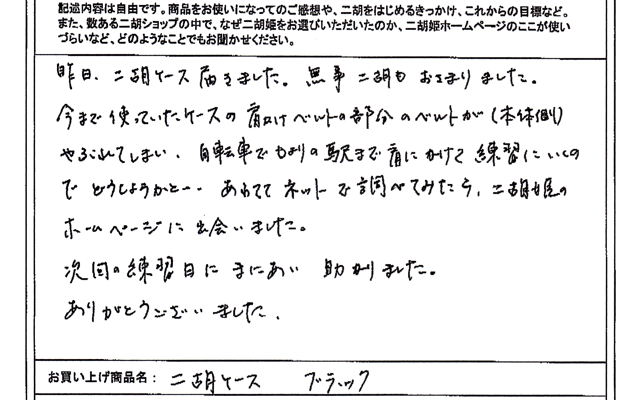 記述内容は自由です。商品をお使いになってのご感想や、二胡をはじめるきっかけ、これからの目標など。
また、数ある二胡ショップの中で、なぜ二胡姫をお選びいただいたのか、二胡姫ホームページのここが使い
づらいなど、どのようなことでもお聞かせください。
昨日、二胡ケース届きました。無事二胡もおさまりました。
今まで使っていたケースの肩掛けベルトの部分のベルトが(本体側)
やぶれてしまい、自転車でもよりの駅まで肩にかけて練習にいくの
でどうしようかと‥あわててネットで調べてみたら、二胡姫の
ホームページに出会いました。
次回の練習日にまにあい助かりました。
ありがとうございました。
お買い上げ商品名: 二胡ケース ブラック